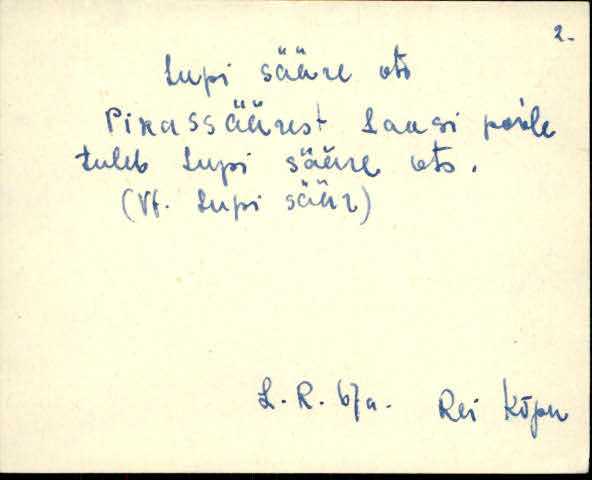 2.
Lupi sääre ots
Pikassäärest Lausi poole
tuleb Lupi sääre ots.
(Vt. Lupi säär)
L. R. b/a. Rei Kõpu